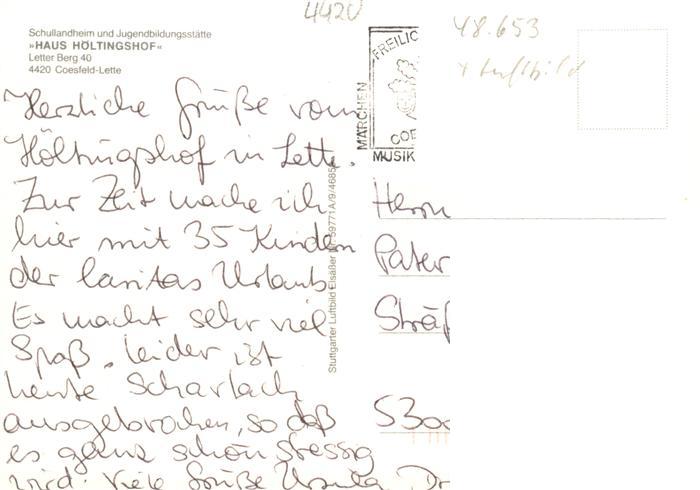 4420
Schullandheim und Jugendbildungsstätte
»HAUS HÖLTINGSHOF«
Letter Berg 40
4420 Coesfeld-Lette
48.653
+ Luftbild
MÄRCHEN
FREILIC
COE
MUSIK
Herzliche Grüße vom
Höltingshof in Lette.
Zur Zeit mache ich
hier mit 35 Kindern
der Caritas Urlaub.
Es macht sehr viel
Spaß. Leider ist
heute Scharlach
ausgebrochen, so daß
es ganz schön stressig
wird. Viele Grüße Ursula
Stuttgarter Luftbild Elsäßer
Herrn
Pater
Sträß
5300